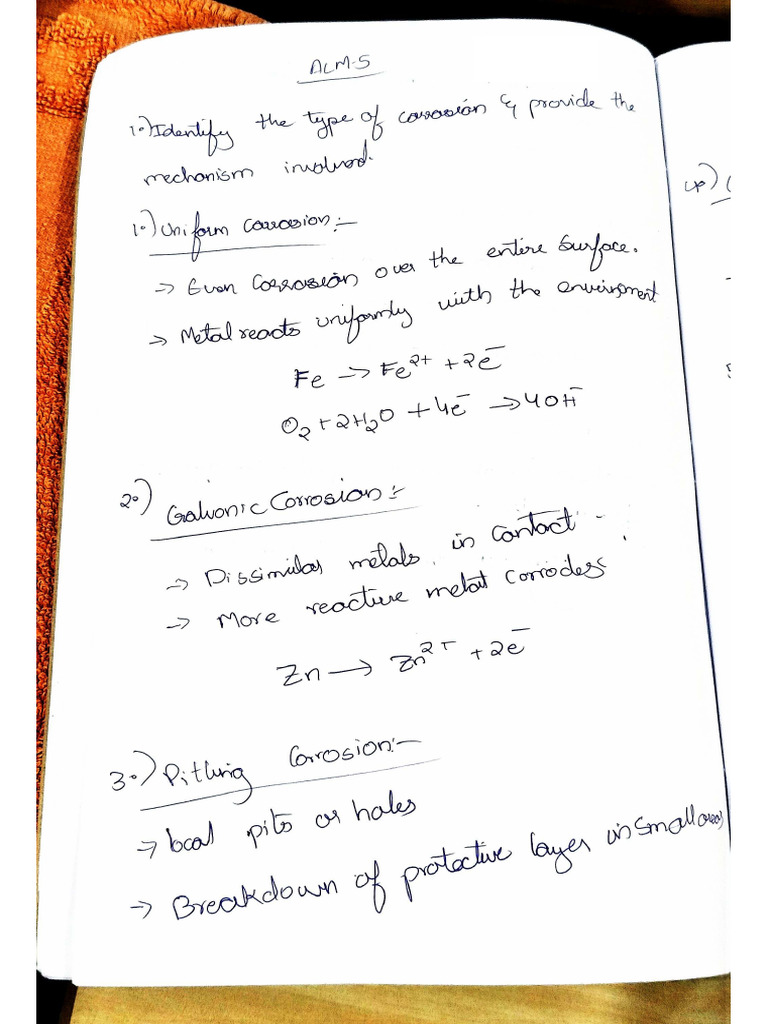 ALM-5
1.) Identify the type of corrosion & provide the
mechanism involved.
1.) Uniform Corrosion :-
-> Even Corrosion over the entire Surface.
-> Metal reacts uniformly with the environment
Fe -> Fe²⁺ + 2e⁻
O₂ + 2H₂O + 4e⁻ -> 4OH⁻
2.) Galvonic Corrosion :-
-> Dissimilar metals in contact.
-> More reactive metal corrodes.
Zn -> Zn²⁺ + 2e⁻
3.) Pitting Corrosion :-
-> local pits or holes
-> Breakdown of protective layer in small areas
4)